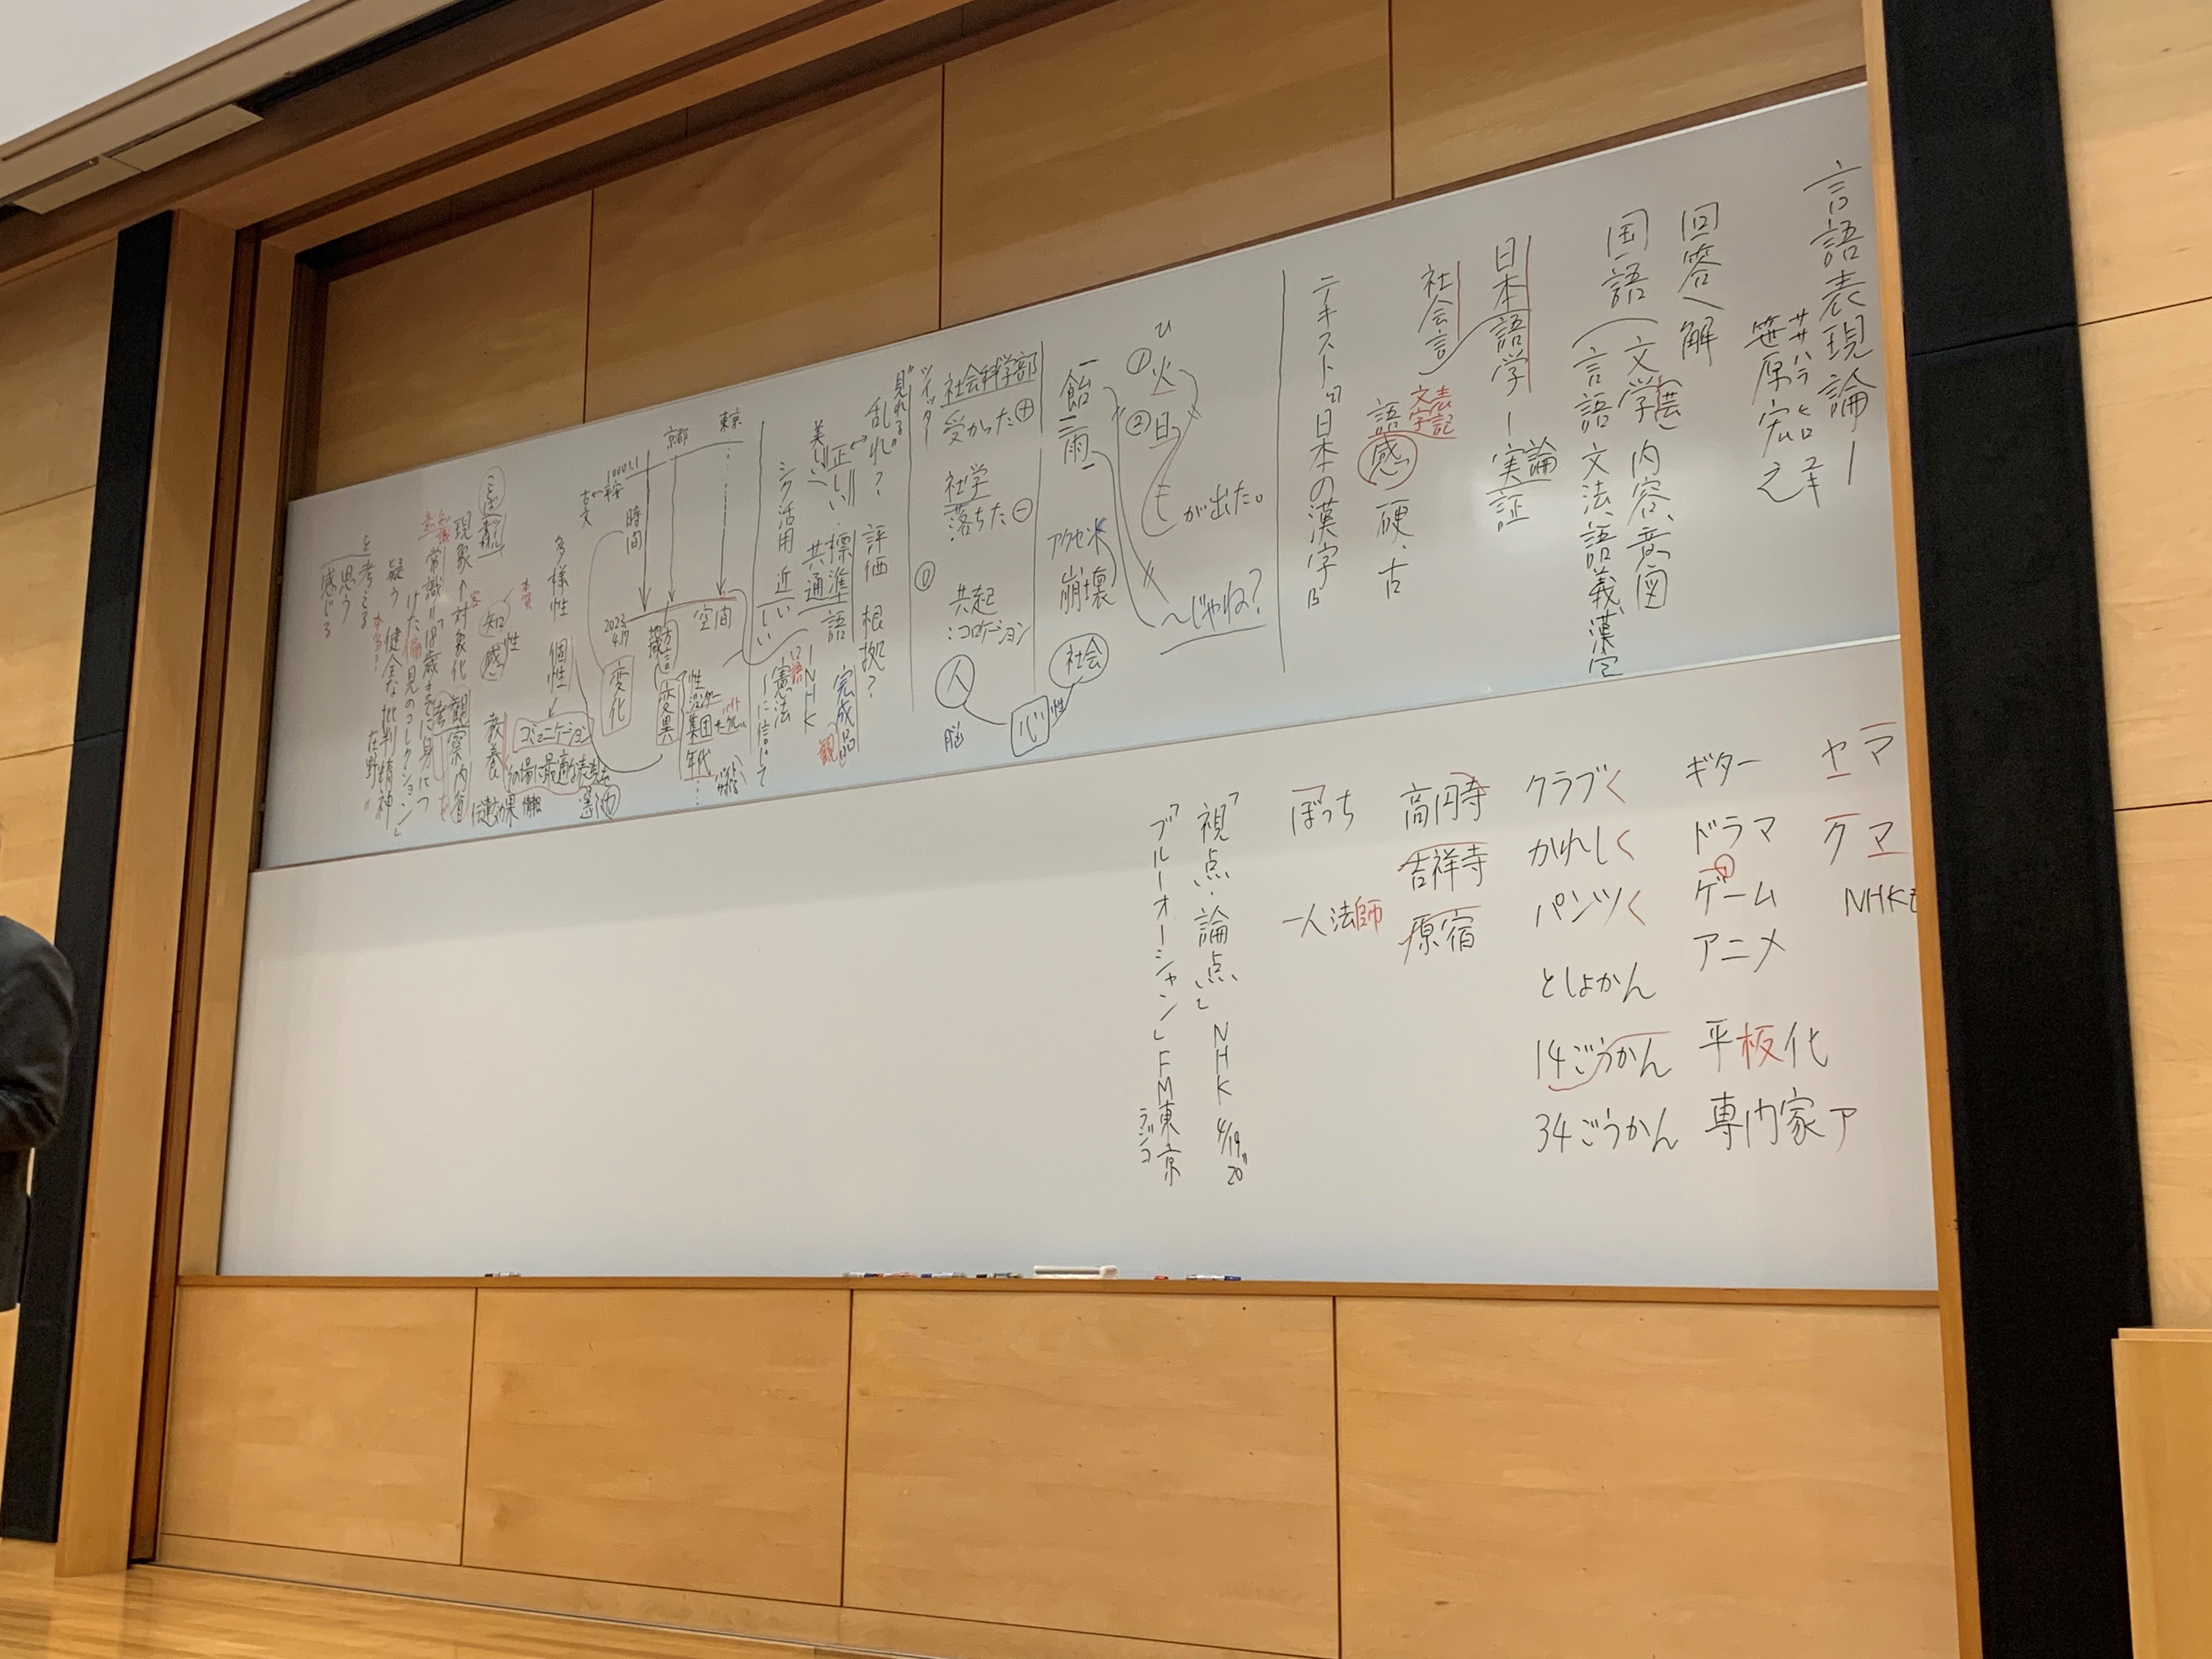 言語表現論Ⅰ
ササハラ ヒロユキ
笹原宏之
回答／解
国語
文学 芸 内容、意図
言語 文法、語義、漢字
日本語学 ー 実証
論
社会言
表記
文字
語感 硬、古
テキスト『日本の漢字』
ひ
①火
②日
が出た。
〜じゃね？
飴
雨
アクセント
崩壊
社会
性
心
人
脳
社会科学部
受かった ＋
社学
落ちた −
共起
：コロケーション
ツイッター
"見れる"
乱れ？ 評価 根拠？
正しい 標準語
美しい 共通 NHK
完成品
観
シク活用 近しい
口語
憲法
ーに信じて
東京
京都
時間
空間
2023
4.17
変化
方言
変異
性
ジェンダー
集団
年代
多様性 個性
コミュニケーション
その場に最適な表現を
選
伝達効果
教養
知性
感
ことば
現象↑対象化 観察 内省
考
常識＝「18歳までに身につ
けた偏見のコレクション」
疑う 健全な批判精神
本当？
在野
を考える
思う
感じる
ヤマ
クマ
NHK
ギター
ドラマ
ゲーム
アニメ
平板化
専門家ア
クラブく
かれしく
パンツく
としょかん
14ごうかん
34ごうかん
高円寺
吉祥寺
原宿
ぼっち
一人法師
「視点・論点」 NHK 4/19,20
「ブルーオーシャン」FM東京
ラジコ